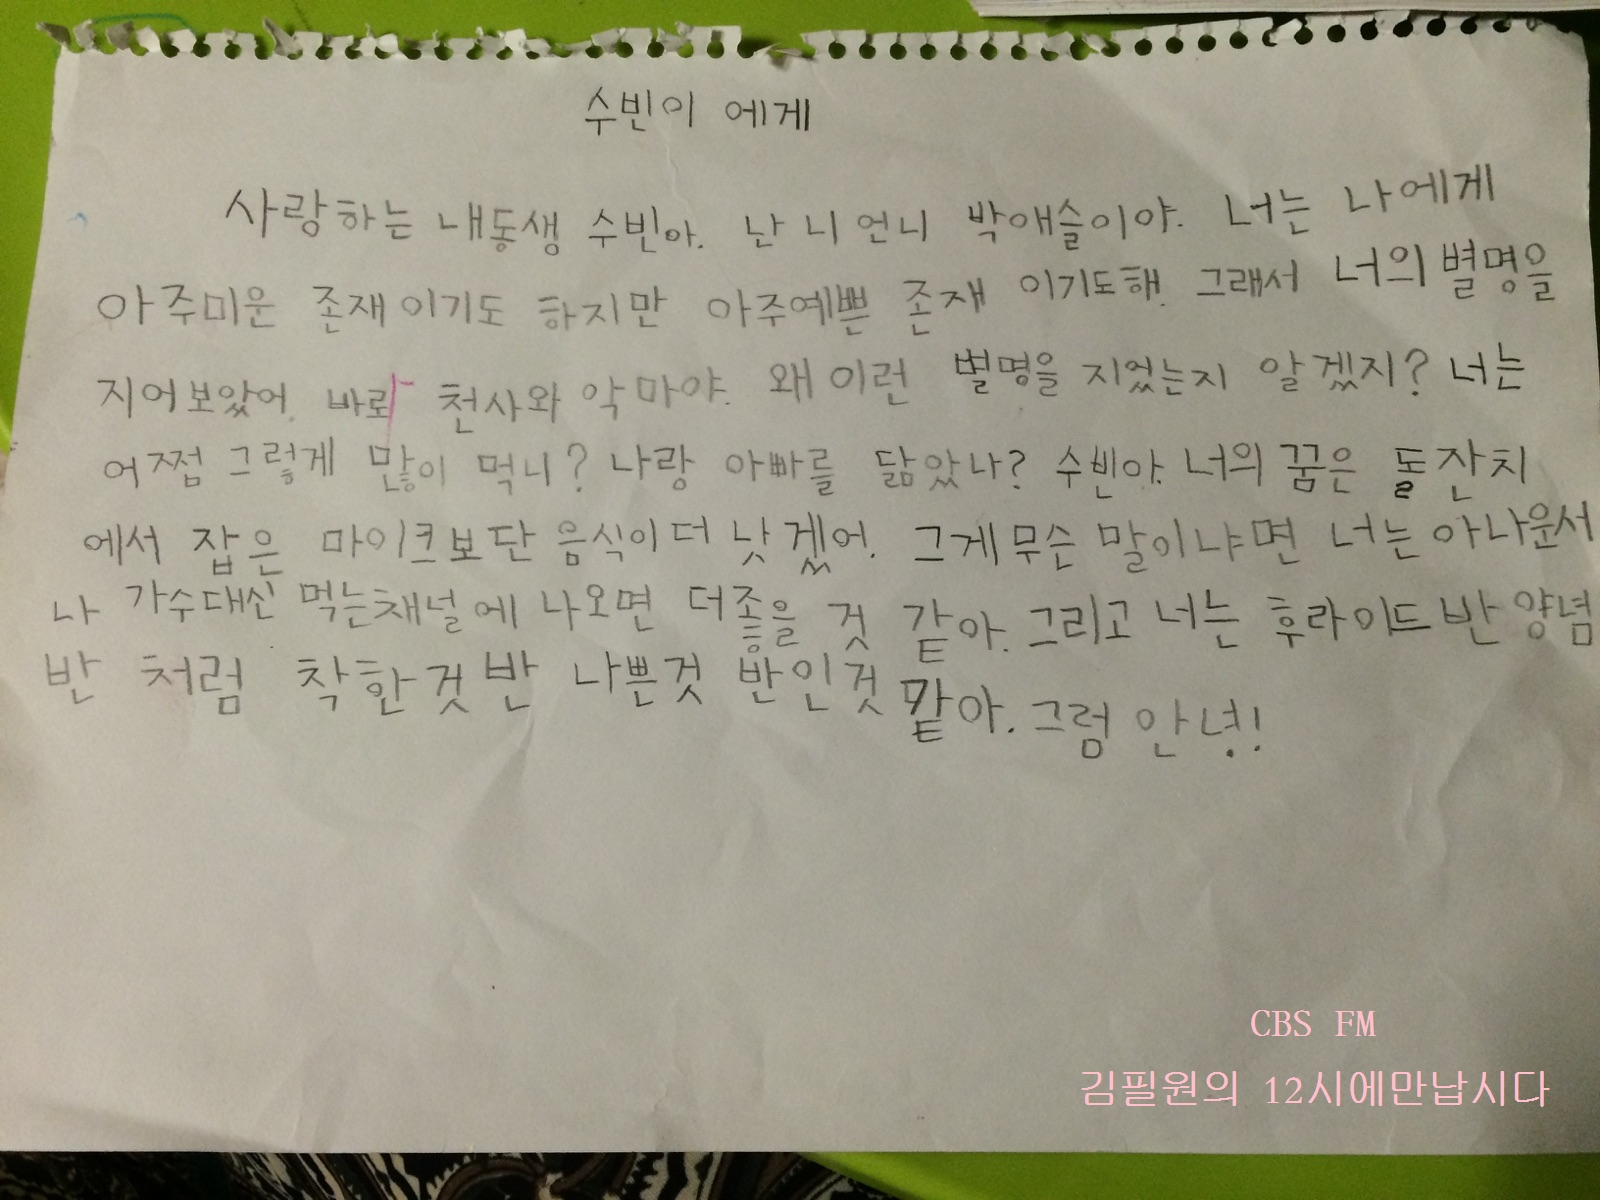 수빈이 에게
사랑하는 내동생 수빈아. 난 니 언니 박애슬이야. 너는 나에게
아주미운 존재이기도 하지만 아주예쁜 존재 이기도해. 그래서 너의 별명을
지어보았어. 바로 천사와 악마야. 왜 이런 별명을 지었는지 알겠지? 너는
어쩜 그렇게 많이 먹니? 나랑 아빠를 닮았나? 수빈아. 너의 꿈은 돌잔치
에서 잡은 마이크보단 음식이 더 낫겠어. 그게 무슨 말이냐면 너는 아나운서
나 가수대신 먹는채널에 나오면 더좋을 것 같아. 그리고 너는 후라이드 반 양념
반 처럼 착한것 반 나쁜것 반인것 같아. 그럼 안녕!
CBS FM
김필원의 12시에만납시다